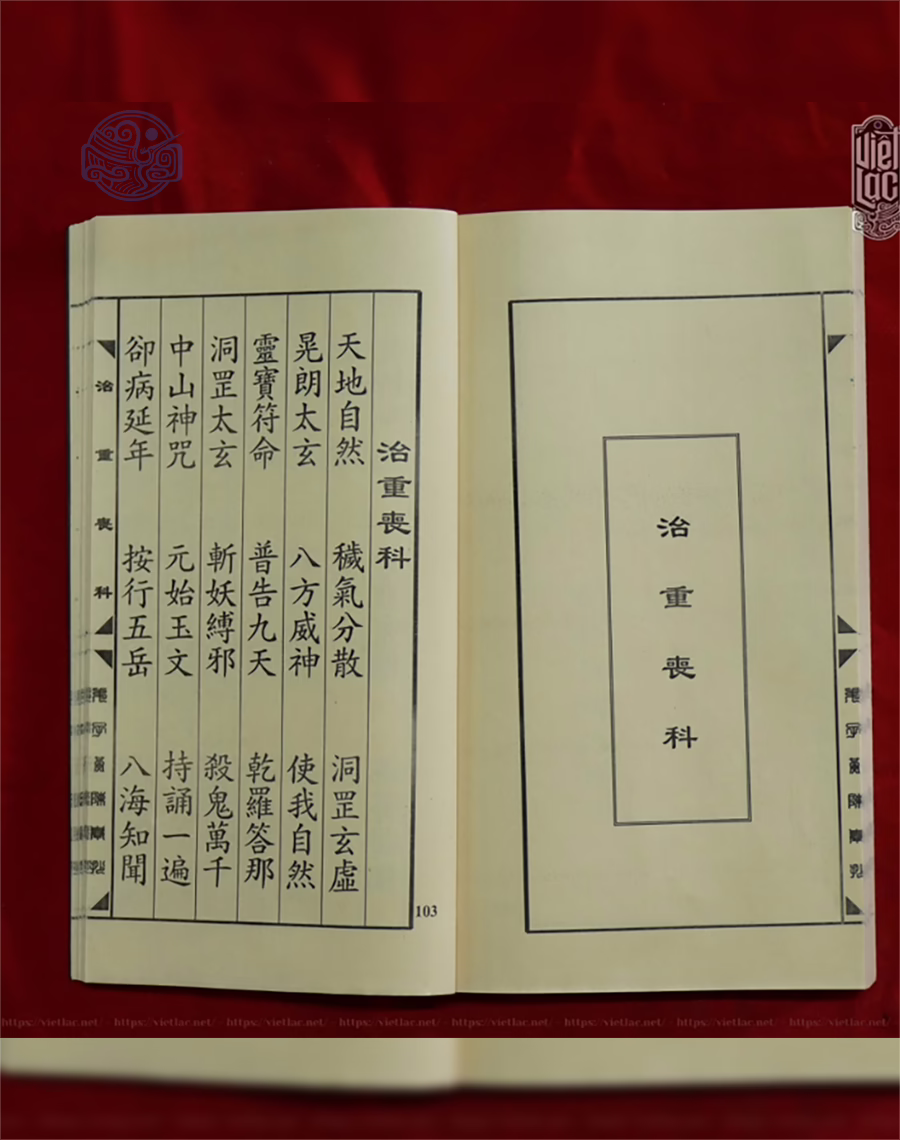 Việt Lạc
治重喪科
治重喪科
天地自然 穢氣分散 洞罡玄虛
晃朗太玄 八方威神 使我自然
靈寶符命 普告九天 乾羅答那
洞罡太玄 斬妖縛邪 殺鬼萬千
中山神咒 元始玉文 持誦一遍
卻病延年 按行五岳 八海知聞
治重喪科
103
https://vietlac.net/ - https://vietlac.net/ - https://vietlac.net/ - https://vietlac.net/ - https://vietlac.net/ - https://vietlac.net/ - https://vietlac.net/ - https://vietlac.net/